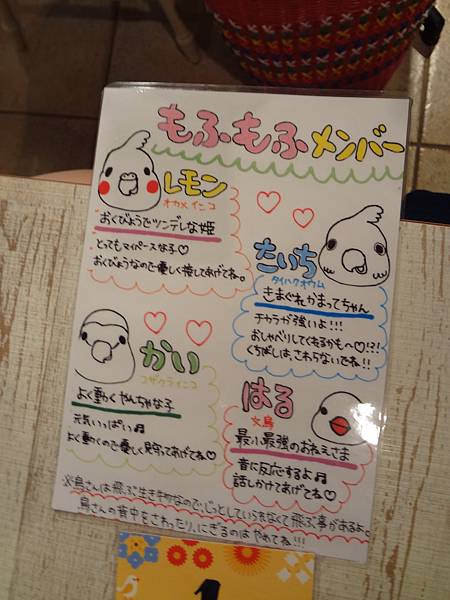 もふもふメンバー
レモン
オカメインコ
おくびょうでツンデレな姫
とってもマイペースな子♡
おくびょうなので優しく接してあげてね。
たいち
タイハクオウム
きまぐれかまってちゃん
チカラが強いよ!!!
おしゃべりしてくれるかもへ♡!?!
くちばしは、さわらないでね!!
かい
コザクラインコ
よく動くやんちゃな子
元気いっぱい♫
よく動くので優しく見守ってあげてね♡
はる
文鳥
最小最強のおねえさま
音に反応するよ♫
話しかけてあげてね♡
※鳥さんは飛ぶ生き物なので、じっとしていられなくて飛ぶ事があるよ。
鳥さんの背中をさわったり、にぎるのはやめてね!!!
1